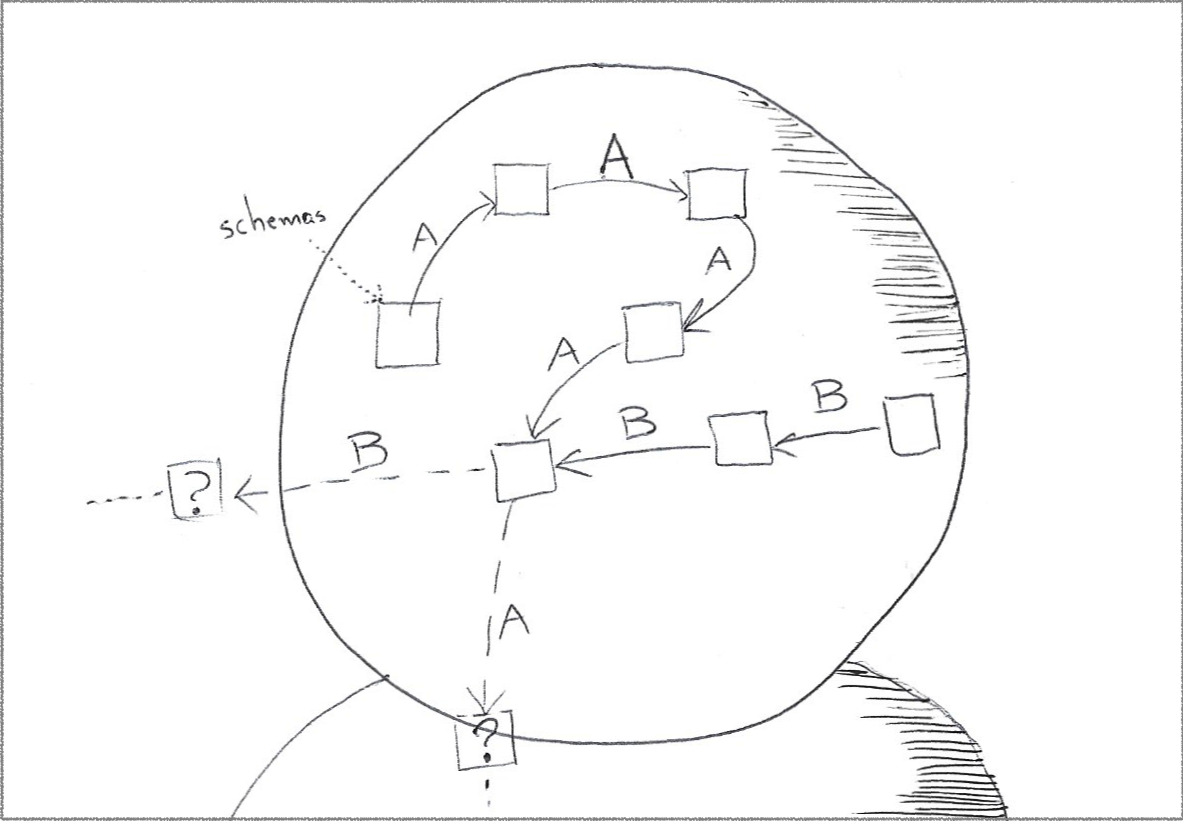 A
schemas
A
A
A
B
B
B
?
A
?